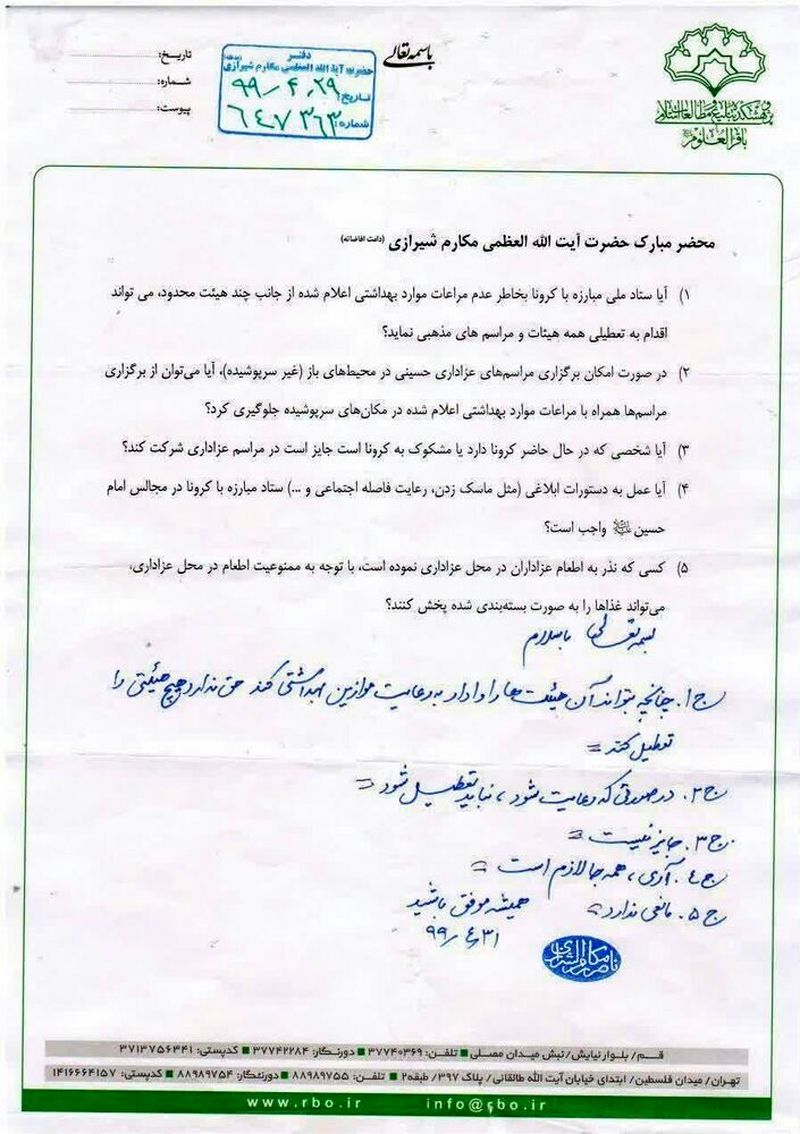 باسمه تعالی
تاریخ:
شماره:
پیوست:
دفتر
حضرت آیة الله العظمی مکارم شیرازی
تاریخ: ۹۹/۴/۲۹
شماره: ۶۴۷۳۶۳
پژوهشکده تبلیغ و مطالعات اسلامی
باقرالعلوم
محضر مبارک حضرت آیت الله العظمی مکارم شیرازی (دامت افاضاته)
۱) آیا ستاد ملی مبارزه با کرونا بخاطر عدم مراعات موارد بهداشتی اعلام شده از جانب چند هیئت محدود، می تواند
اقدام به تعطیلی همه هیئات و مراسم های مذهبی نماید؟
۲) در صورت امکان برگزاری مراسم‌های عزاداری حسینی در محیط‌های باز (غیر سرپوشیده)، آیا می‌توان از برگزاری
مراسم‌ها همراه با مراعات موارد بهداشتی اعلام شده در مکان‌های سرپوشیده جلوگیری کرد؟
۳) آیا شخصی که در حال حاضر کرونا دارد یا مشکوک به کرونا است جایز است در مراسم عزاداری شرکت کند؟
۴) آیا عمل به دستورات ابلاغی (مثل ماسک زدن، رعایت فاصله اجتماعی و ...) ستاد مبارزه با کرونا در مجالس امام
حسین علیه‌السلام واجب است؟
۵) کسی که نذر به اطعام عزاداران در محل عزاداری نموده است، با توجه به ممنوعیت اطعام در محل عزاداری،
می‌تواند غذاها را به صورت بسته‌بندی شده پخش کنند؟
بسمه تعالی با سلام
ج۱. چنانچه بتواند آن هیئت ها را وادار به رعایت موازین بهداشتی کند حق ندارد هیچ هیئتی را
تعطیل کند =
ج۲. در صورتی که رعایت شود، نباید تعطیل شود =
ج۳. جایز نیست =
ج۴. آری، همه جا لازم است =
ج۵. مانعی ندارد =
همیشه موفق باشید
۹۹/۴/۳۱
ناصر مکارم الشیرازی
قم/ بلوار نیایش/ نبش میدان مصلی ■ تلفن: ۳۷۷۴۰۳۶۹ ■ دورنگار: ۳۷۷۴۲۲۸۴ ■ کدپستی: ۳۷۱۳۷۵۶۳۴۱
تهران/ میدان فلسطین/ ابتدای خیابان آیت الله طالقانی/ پلاک ۳۹۷/ طبقه۲ ■ تلفن: ۸۸۹۸۹۷۵۵ ■ دورنگار: ۸۸۹۸۹۷۵۴ ■ کدپستی: ۱۴۱۶۶۶۴۱۵۷
www.rbo.ir info@rbo.ir